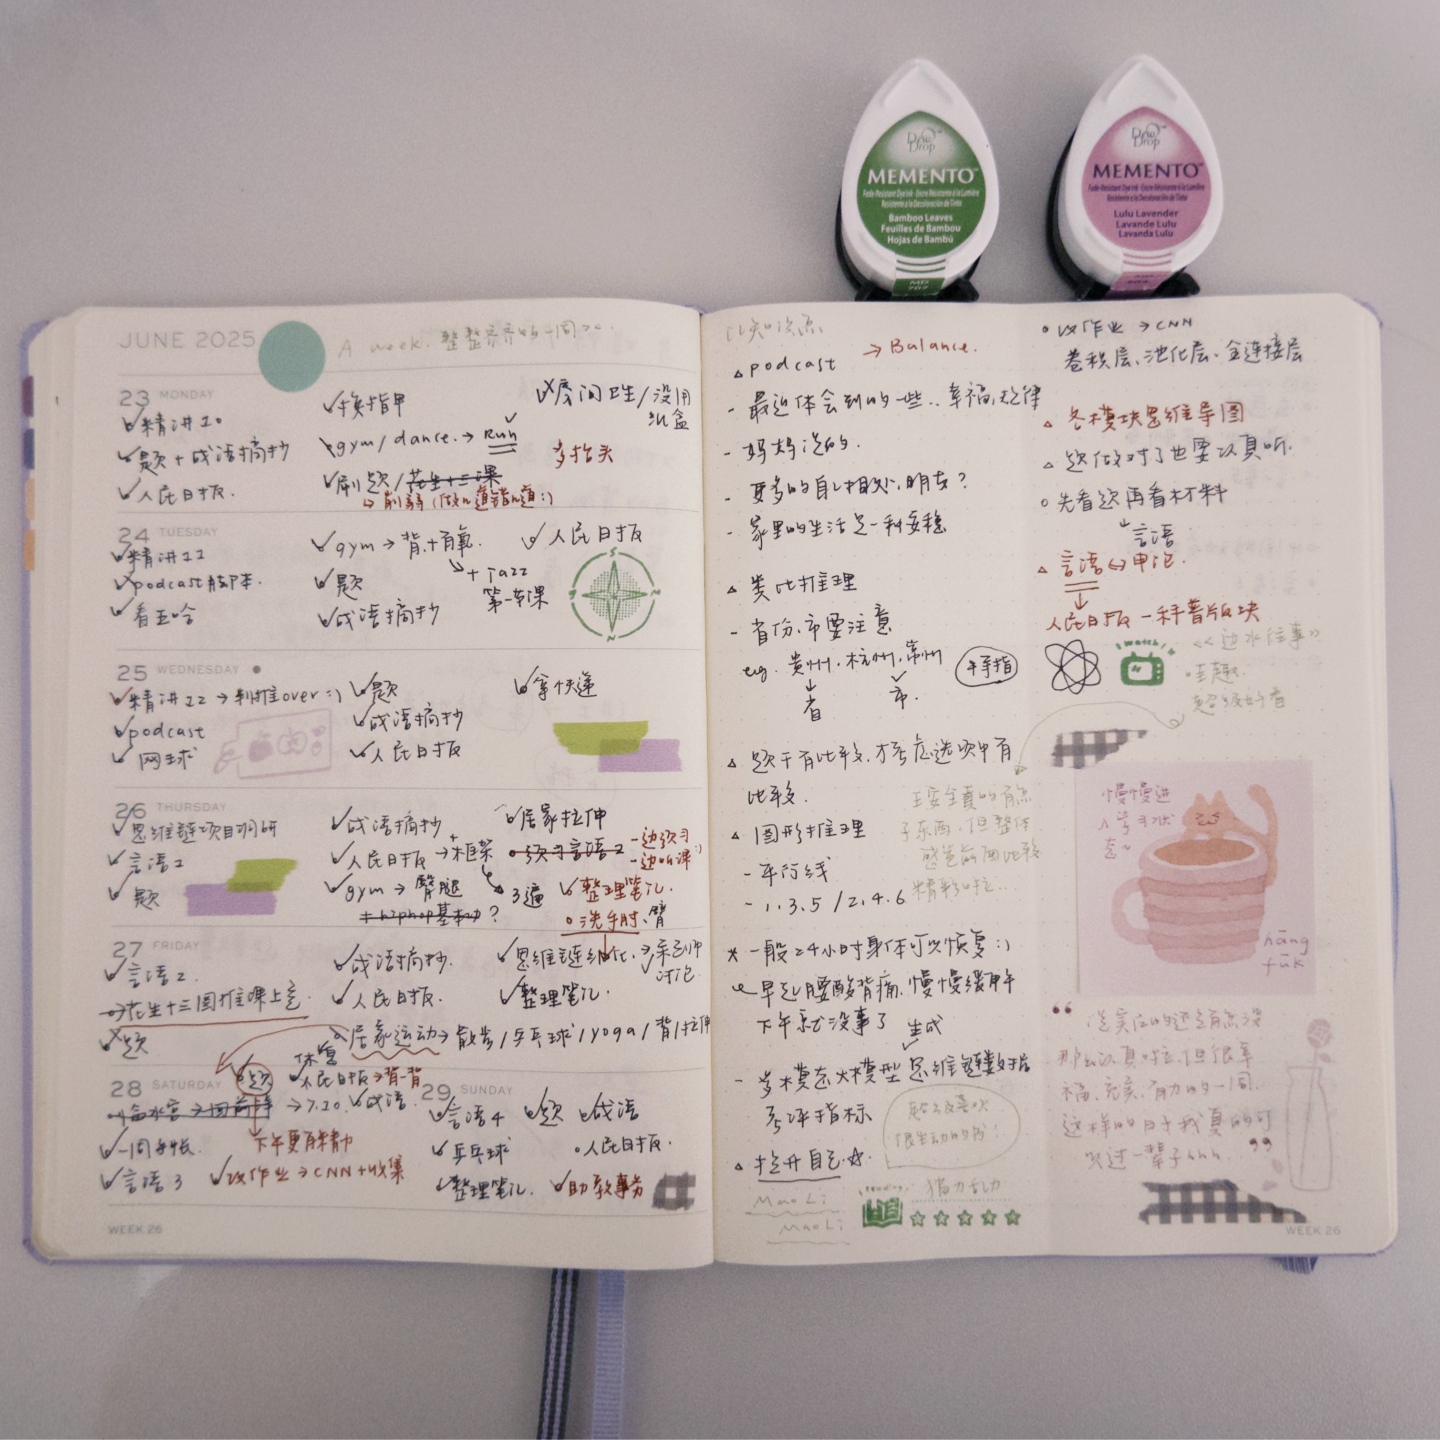 Dew Drop
MEMENTO
Fade-Resistant Dye Ink · Encre Résistante à la Lumière
Resistente a la Decoloración de Tinta
Bamboo Leaves
Feuilles de Bambou
Hojas de Bambú
MD
707
Dew Drop
MEMENTO
Fade-Resistant Dye Ink · Encre Résistante à la Lumière
Resistente a la Decoloración de Tinta
Lulu Lavender
Lavande Lulu
Lavanda Lulu
JUNE 2025
A week. 整整齐齐的一周
23 MONDAY
精讲20
题+成语摘抄
人民日报.
换指甲
gym/dance. → run
刷题/花生十三课
↳ 刷弱 (做n道错n道:)
房间卫生/没用
纸盒
多抬头
24 TUESDAY
精讲21
podcast脚本.
看亚哈
gym → 背+有氧.
+ jazz
第一节课
题
成语摘抄
人民日报
25 WEDNESDAY
精讲22 → 判推over :)
podcast
网球
题
成语摘抄
人民日报
拿快递
26 THURSDAY
思维链项目调研
言语2
题
成语摘抄
人民日报 → +框架
gym → 臀腿
+hiphop基本功 ?
3遍
居家拉伸
预习言语2
-边预习
-边听课 :)
整理笔记.
洗手肘、臂
27 FRIDAY
言语2.
→花生十三图推课上完.
题
成语摘抄.
人民日报.
思维链细化.
讨论
整理笔记.
居家运动 → 散步/乒乓球/yoga/背/拉伸
28 SATURDAY
题
恢复
人民日报→背一背
→7.20.
成语.
一周手帐.
下午更有精力
言语3
改作业→CNN+收集
29 SUNDAY
言语4
题
成语
乒乓球
人民日报.
整理笔记.
助教事务
WEEK 26
小知识点
podcast → Balance.
- 最近体会到的一些..幸福,规律
- 妈妈说的.
- 更多的自己相处,朋友?
- 家里的生活是一种安稳
类比推理
- 省份、市要注意
eg. 贵州、杭州、常州
省
市.
题干有比较.才考虑选项中有
比较.
图形推理
- 平行线
- 1.3.5 / 2.4.6
* 一般24小时身体可以恢复:)
早起腰酸背痛,慢慢缓解
下午就没事了
生成
- 多模态大模型思维链数据
考评指标
抬升自己☆.
MaoLi
MaoLi
超级喜欢
很生动的书!
reading
猫力乱力
改作业 → CNN
卷积层、池化层、全连接层
各模块思维导图
题做对了也要认真听.
先看题再看材料
言语
言语⇔申论.
人民日报一种普版块
I Watch!
《边水往事》
哇趣.
超级好看
慢慢进
入学习状
态~
hāng
fūk
福、充实、有力的一周.
这样的日子我真的可
以过一辈子hhh.
WEEK 26